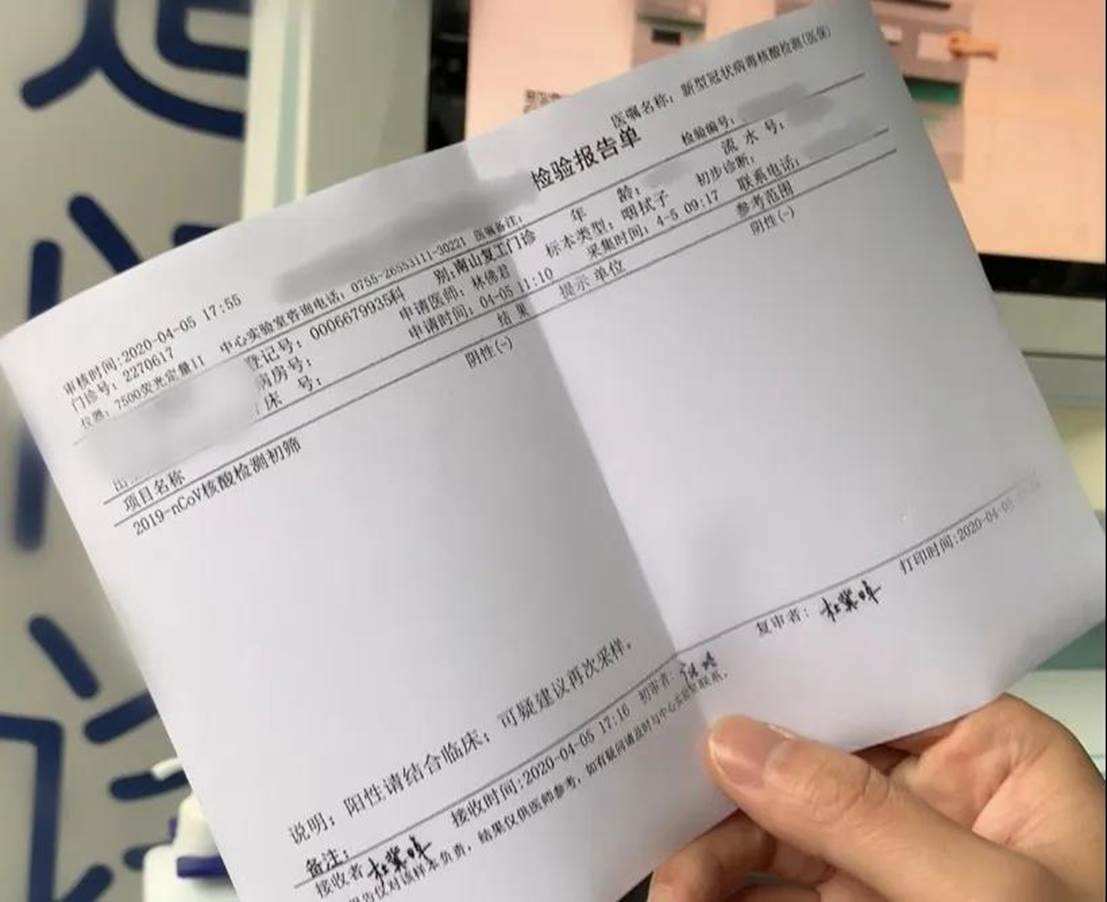 医嘱名称：新型冠状病毒核酸检测(医保)
检验报告单
检验编号：
审核时间:2020-04-05 17:55
中心实验室咨询电话：0755-26553111-30221 医嘱备注：
年 龄：
流 水 号：
门诊号：2270617
登记号：0006679935科 别：南山复工门诊
标本类型：咽拭子
初步诊断：
仪器：7500荧光定量II
病房号：
申请医师：林倩君
采集时间：4-5 09:17
联系电话：
床 号：
申请时间：04-05 11:10
项目名称
结 果
提示 单位
参考范围
2019-nCoV核酸检测初筛
阴性(-)
阴性(-)
说明：阳性请结合临床；可疑建议再次采样。
备注：
接收者
接收时间:2020-04-05 17:16
初审者：
复审者：
打印时间:2020-04-05
报告仅对该样本负责，结果仅供医师参考，如有疑问请及时与中心实验室联系。